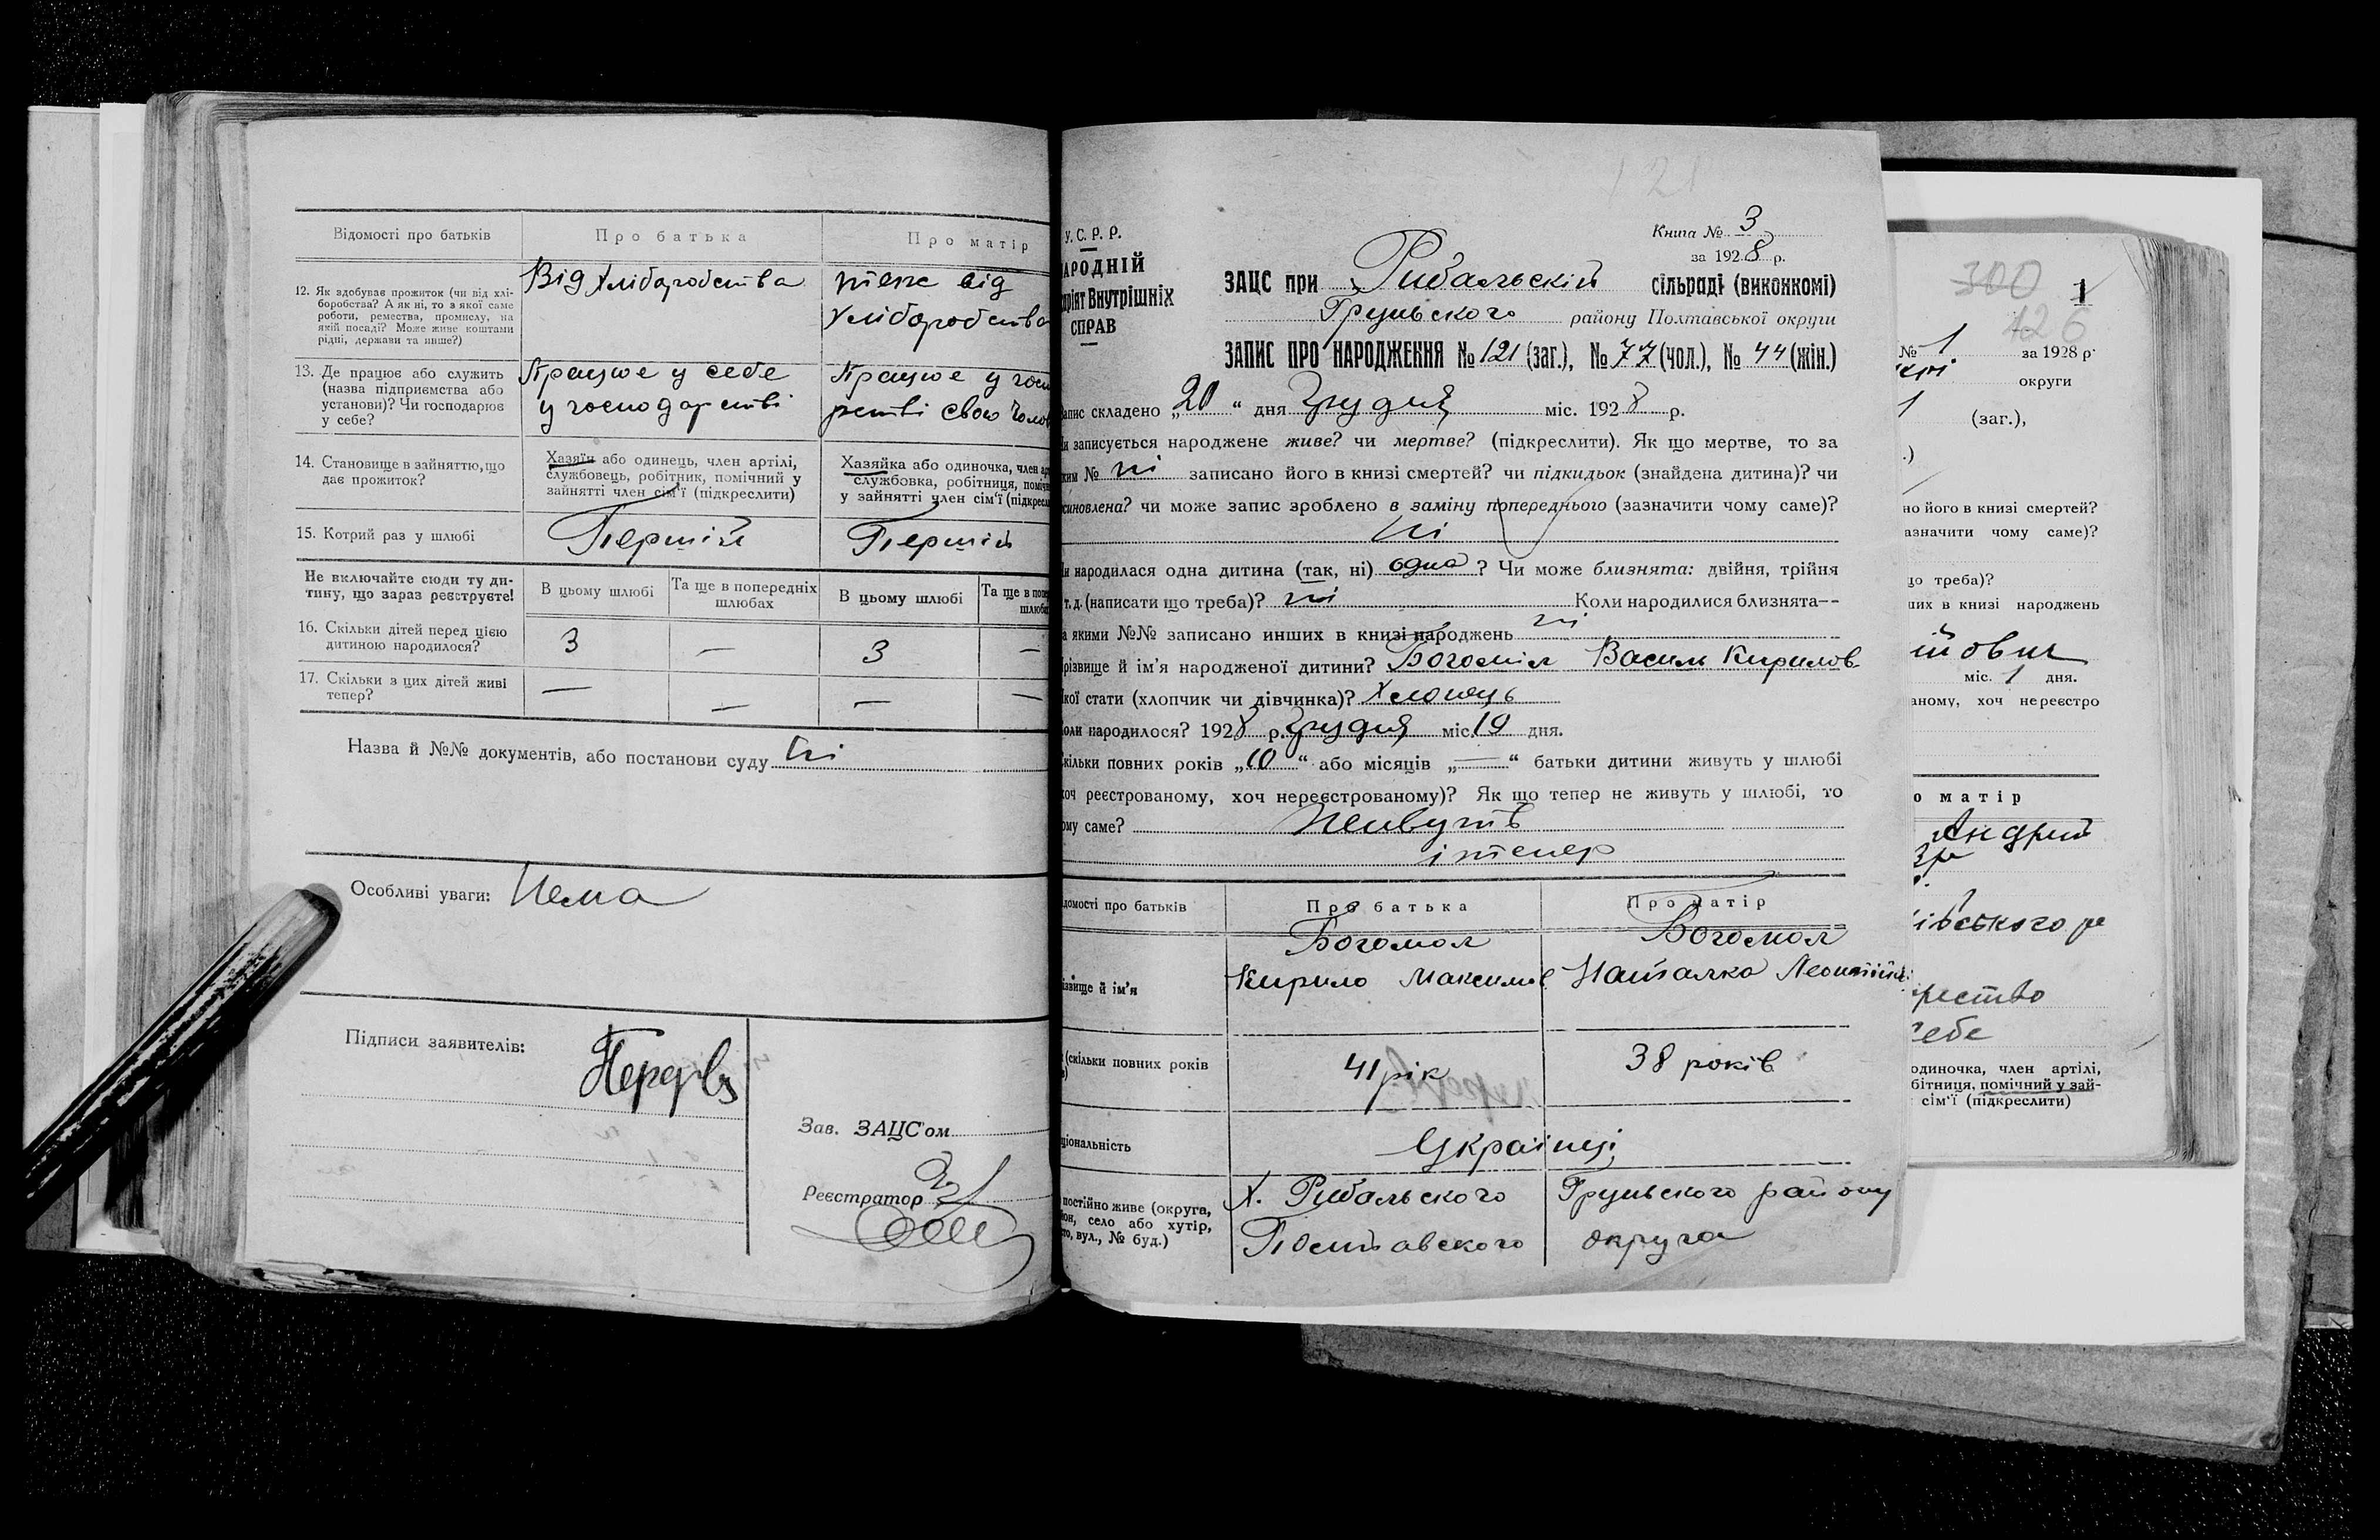 Відомості про батьків
Про батька
Про матір
12. Як здобуває прожиток (чи від хлі-
боробства? А як ні, то з якої саме
роботи, ремества, промислу, на
якій посаді? Може живе коштами
рідні, держави та инше?)
Від Хліборобства
теж від
Хліборобства
13. Де працює або служить
(назва підприємства або
установи)? Чи господарює
у себе?
Працює у себе
у господарстві
Працює у госп
рстві свого чолов
14. Становище в зайняттю, що
дає прожиток?
Хазяїн або одинець, член артілі,
службовець, робітник, помічний у
зайнятті член сім'ї (підкреслити)
Хазяйка або одиночка, член ар
службовка, робітниця, поміч
у зайнятті член сім'ї (підкресл
15. Котрий раз у шлюбі
Перший
Перший
Не включайте сюди ту ди-
тину, що зараз реєструєте!
В цьому шлюбі
Та ще в попередніх
шлюбах
В цьому шлюбі
Та ще в попе
шлюбах
16. Скільки дітей перед цією
дитиною народилося?
3 — 3 —
17. Скільки з цих дітей живі
тепер?
— — — —
Назва й №№ документів, або постанови суду ні
Особливі уваги: Нема
Підписи заявителів:
Зав. ЗАЦС'ом
Реєстратор
121
У. С. Р. Р.
АРОДНІЙ
ріят Внутрішніх
СПРАВ
Книга № 3
за 1928 р.
ЗАЦС при Рибальскій сільраді (виконкомі)
Грунського району Полтавської округи
ЗАПИС ПРО НАРОДЖЕННЯ № 121 (заг.), № 77 (чол.), № 44 (жін.)
апис складено „20“ дня Грудня міс. 1928 р.
и записується народжене живе? чи мертве? (підкреслити). Як що мертве, то за
ким № ні записано його в книзі смертей? чи підкидьок (знайдена дитина)? чи
синовлена? чи може запис зроблено в заміну попереднього (зазначити чому саме)?
ні
и народилася одна дитина (так, ні) одна? Чи може близнята: двійня, трійня
т. д. (написати що треба)? ні Коли народилися близнята—
а якими №№ записано инших в книзі народжень ні
різвище й ім'я народженої дитини? Богомол Василь Кирилов
кої стати (хлопчик чи дівчинка)? Хлопець
оли народилося? 1928 р. Грудня міс. 19 дня.
кільки повних років „10“ або місяців „—“ батьки дитини живуть у шлюбі
оч реєстрованому, хоч нереєстрованому)? Як що тепер не живуть у шлюбі, то
ому саме? Живуть
і тепер
домості про батьків
Про батька
Про матір
ізвище й ім'я
Богомол
Кирило Максимов
Богомол
Наталка
(скільки повних років
41 рік
38 років
ціональність
Українці
постійно живе (округа,
он, село або хутір,
то, вул., № буд.)
Х. Рибальського Грунського району
Полтавского округа
300
1
126
№ 1 за 1928 р.
округи
1 (заг.),
.)
но його в книзі смертей?
азначити чому саме)?
о треба)?
ших в книзі народжень
йович
міс. 1 дня.
аному, хоч нереєстро
о матір
Андрий
івського ра
рество
себе
одиночка, член артілі,
бітниця, помічний у зай-
сім'ї (підкреслити)